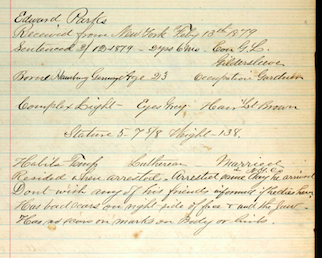 Edward Parks
Received from New York Feby 13th 1879
Sentenced 2/12 1879 - 2 yrs 6 mo. Con G. L.
Gildersleeve
Born Hamburg Germany Age 23 Occupation Gardner
Complex Light - Eyes Grey - Hair Lt Brown
Stature 5-7 5/8 Weight - 138.
Habits Temp Lutheran - Married
Resided when arrested. Arrested same day he arrived
Dont wish any of his friends informed of his
Has bad scars on right side of face & and the
Has no scars or marks on Body or limbs.